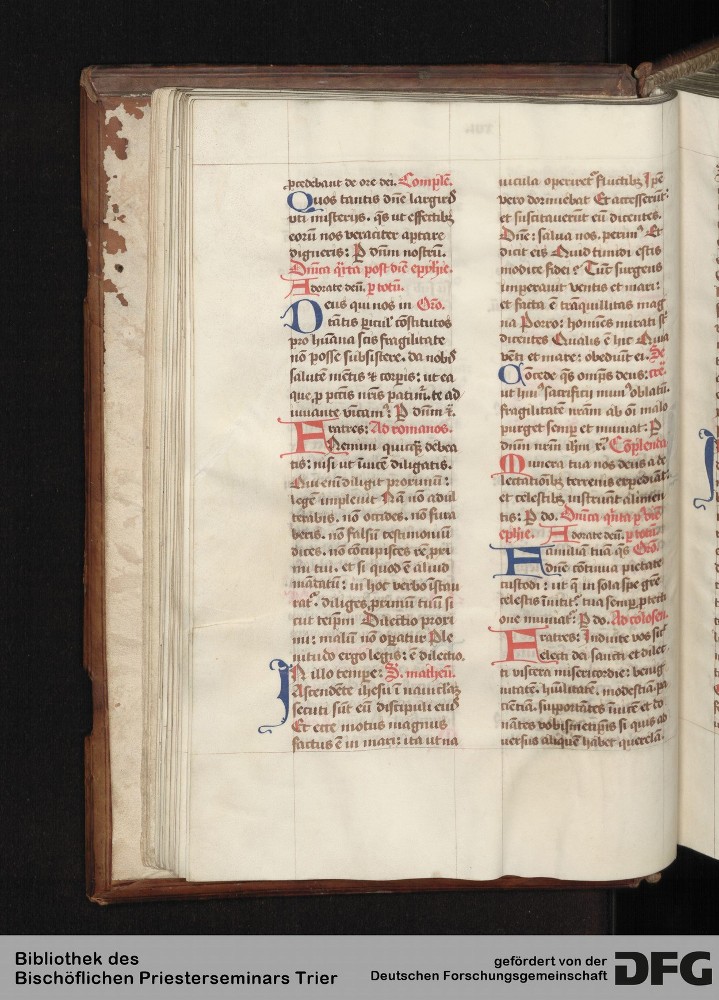 p̱cedebant de ore dei. Complē.
Quos tantis dn̄e largirꝭ
vti misterijs. q̄s ut effectibꝫ
eorū nos veraciter aptare
digneris: P dn̄m nostrū.
Dn̄ica q̄rta post diē epyhīe.
Adorate deū. p totū.
Deus qui nos in Oro.
tātis picul' cōstitutos
pro hūana scis fragilitate
nō posse subsistere. da nobꝭ
salutē mētis ⁊ corpis: ut ea
que p pctīs nrīs patim̄. te ad
iuuante vīcam9: P dn̄m ⁊.
Fratres: Ad romanos.
Nemini quicqꝫ debea
tis: nisi ut īuicē diligatis.
Qui enī diligit proximū:
legē impleuit Nā nō adul
terabis. nō occides. nō fura
beris. nō falsū testimoniū
dices. nō cōcupisces rē pxi
mi tui. et si quod ē aliud
mādatū: in hoc verbo īstau
rat᷑. diliges pximū tuū si
cut teipm̄ Dilectio proxi
mi: malū nō opatur Ple
nitudo ergo legis: ē dilectio.
IN illo tempe: S. matheū.
Ascendēte ihesu ī nauiclāꝫ
secuti sūt eū discipuli eiꝰ
Et ecce motus magnus
factus ē in mari: ita ut na
uicula operiret᷑ fluctibꝫ Ipe
vero dormiebat Et accesserūt:
et suscitauerūt eū dicentes.
Dn̄e: salua nos. perim9 Et
dicit eis Quid timidi estis
modice fidei? Tūc surgens
imperauit ventis et mari:
et facta ē trāquillitas mag
na Porro: homīes mirati sť
dicentes Qualis ē hic Quia
vēti et mare: obediūt ei. Se
Cōcede q̄s omps deus: cre.
ut hui9 sacrificij mun9 oblatū.
fragilitatē nrām ab ōi malo
purget semp et muniat: P
dn̄m nrm ihm x. Cōplenda
Munera tua nos deus a de
lectationibꝫ terrenis expediāt:
et celestibꝫ instruāt alimen
tis: P do. Dn̄ica q̄nta p' diē
ephie. Adorate deū. p totū.
Familiā tuā q̄s Oro.
dn̄e cōtinua pietate
custodi: ut q̄ in sola spe gre
celestis īnitit᷑ tua semp ptecti
one muniat᷑: P do. Ad colosen.
Fratres: Induite vos sic᷑
electi dei sancti et dilec
ti viscera misericordie: benig
nitatē. hūilitatē. modestiā. pa
ciētiā. supportātes īuicē et do
nātes vobismetipīs si quis ad
uersus aliquē habet querelā.
Bibliothek des
Bischöflichen Priesterseminars Trier
gefördert von der
Deutschen Forschungsgemeinschaft
DFG